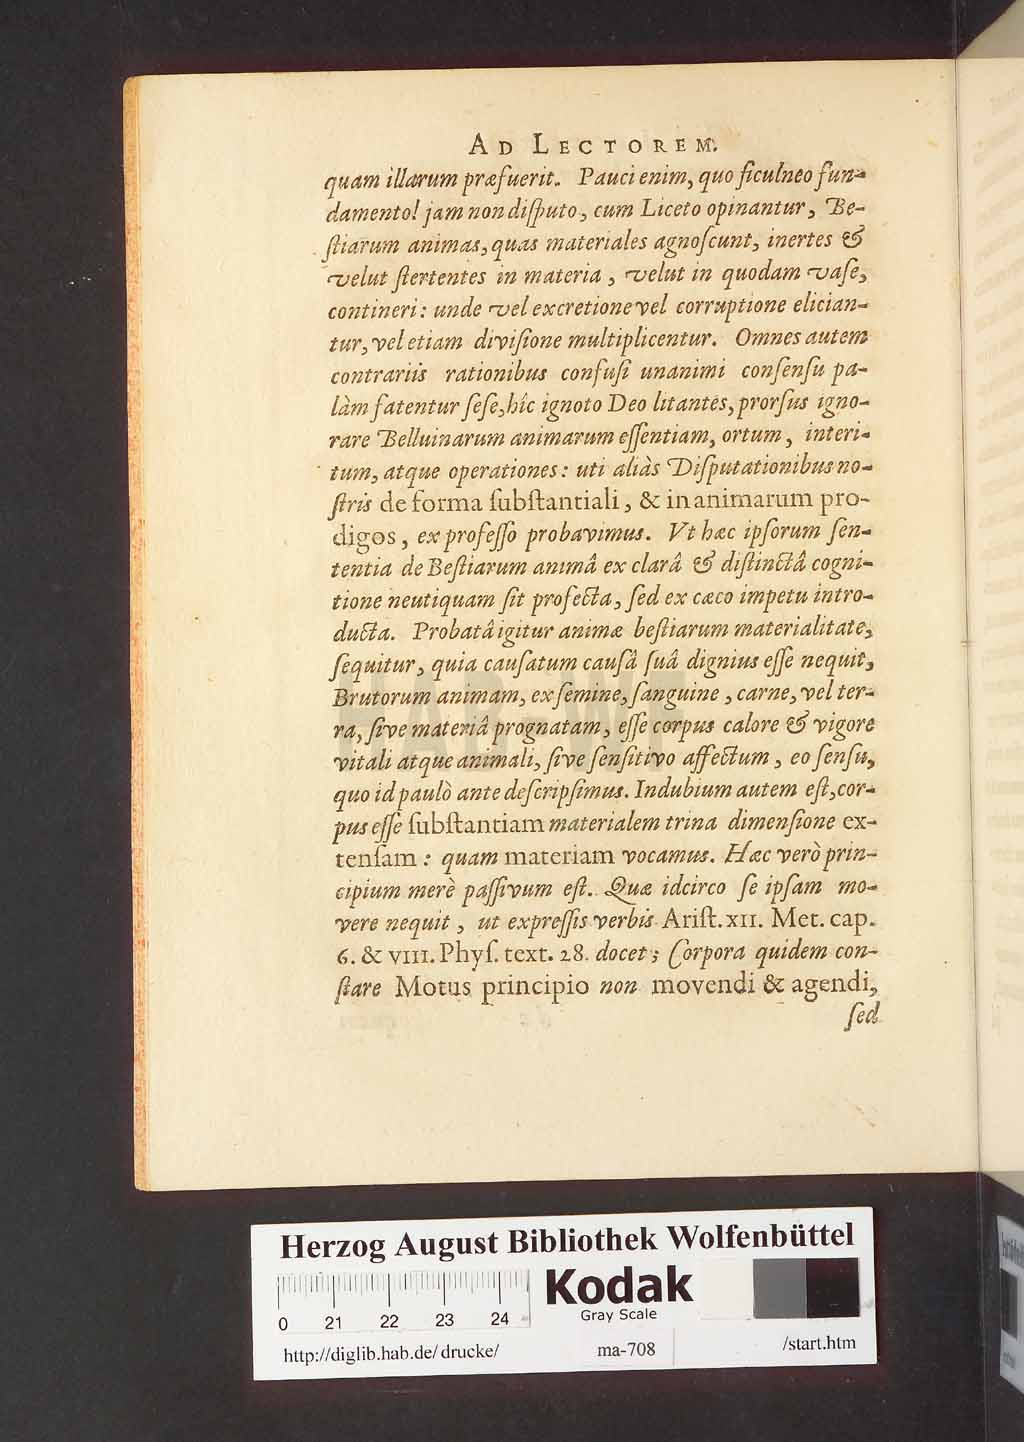 AD LECTOREM.
quam illarum præfuerit. Pauci enim, quo ficulneo fun-
damento! jam non diſputo, cum Liceto opinantur, Be-
ſtiarum animas, quas materiales agnoſcunt, inertes &
velut ſtertentes in materia, velut in quodam vaſe,
contineri: unde vel excretione vel corruptione elician-
tur, vel etiam diviſione multiplicentur. Omnes autem
contrariis rationibus confuſi unanimi conſenſu pa-
làm fatentur ſeſe, hîc ignoto Deo litantes, prorſus igno-
rare Belluinarum animarum eſſentiam, ortum, interi-
tum, atque operationes: uti aliàs Diſputationibus no-
ſtris de forma ſubſtantiali, & in animarum pro-
digos, ex profeſſo probavimus. Vt hæc ipſorum ſen-
tentia de Beſtiarum animâ ex clarâ & diſtinctâ cogni-
tione neutiquam ſit profecta, ſed ex cæco impetu intro-
ducta. Probatâ igitur animæ beſtiarum materialitate,
ſequitur, quia cauſatum cauſâ ſuâ dignius eſſe nequit,
Brutorum animam, ex ſemine, ſanguine, carne, vel ter-
ra, ſive materiâ prognatam, eſſe corpus calore & vigore
vitali atque animali, ſive ſenſitivo affectum, eo ſenſu,
quo id paulò ante deſcripſimus. Indubium autem eſt, cor-
pus eſſe ſubſtantiam materialem trina dimenſione ex-
tenſam: quam materiam vocamus. Hæc verò prin-
cipium merè paſſivum eſt. Quæ idcirco ſe ipſam mo-
vere nequit, ut expreſſis verbis Ariſt. XII. Met. cap.
6. & VIII. Phyſ. text. 28. docet; Corpora quidem con-
ſtare Motus principio non movendi & agendi,
ſed
Herzog August Bibliothek Wolfenbüttel
Kodak
Gray Scale
0 21 22 23 24
http://diglib.hab.de/drucke/ ma-708 /start.htm